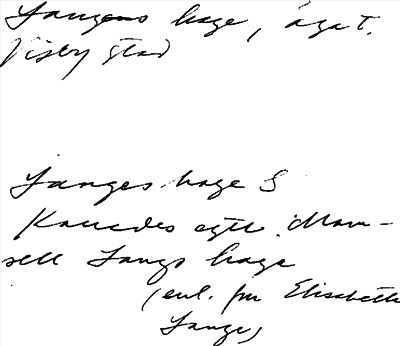 Langens hage, ägat.
Visby stad
Langes hage S
Kallades Mam-
sell Langs hage
(enl. frn Elisabeth
Lange)